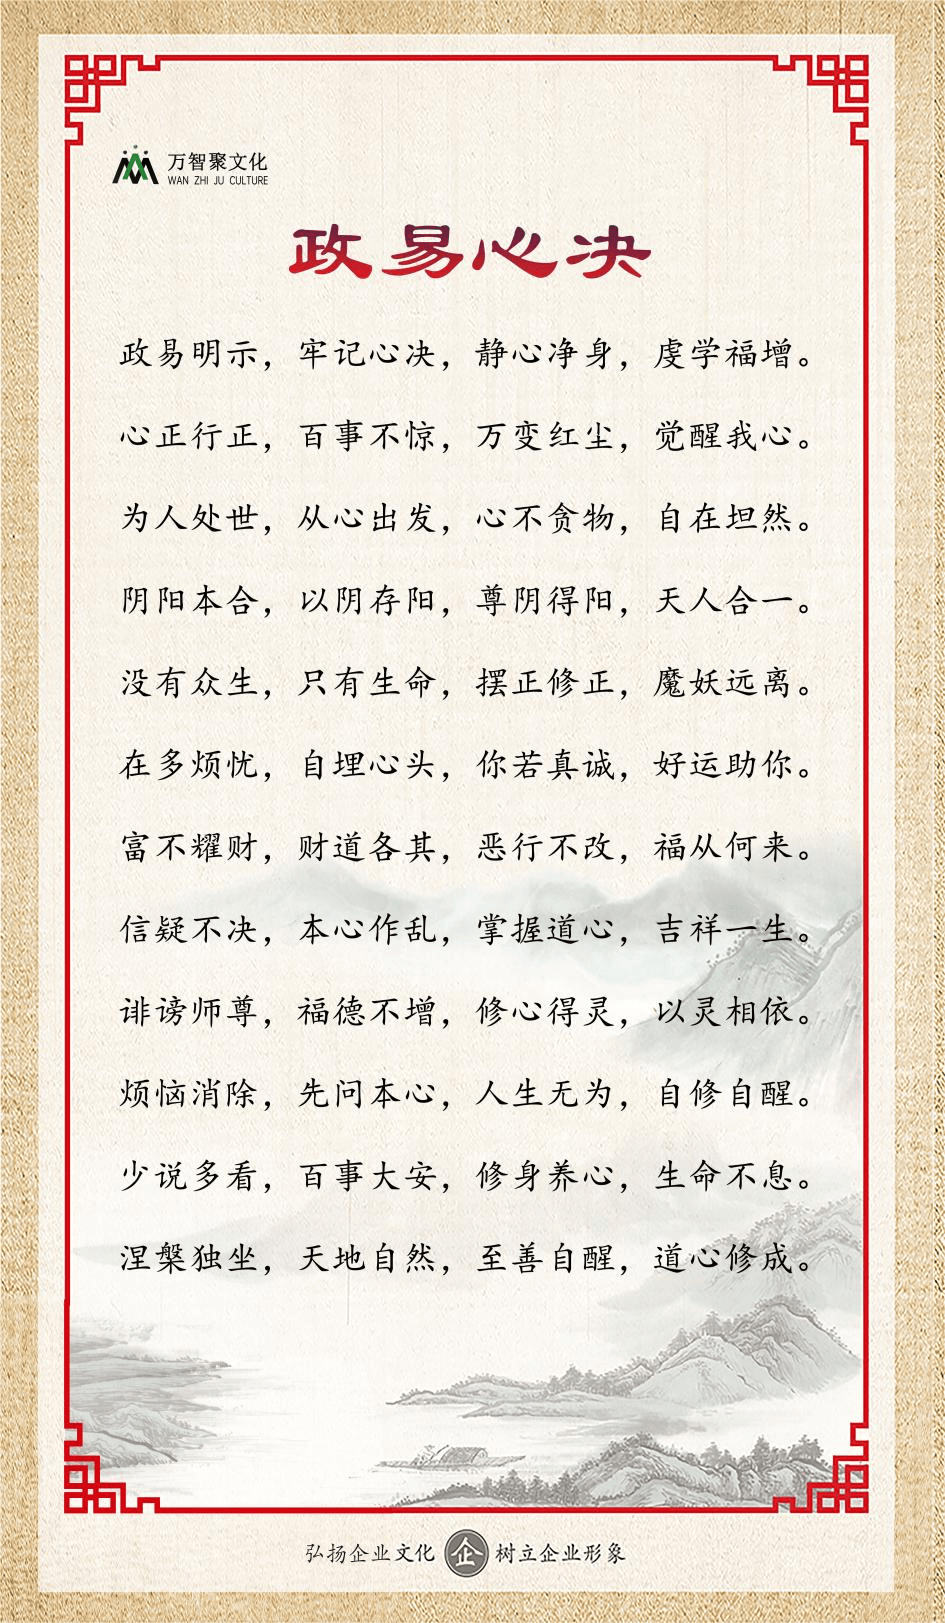 万智聚文化
WAN ZHI JU CULTURE
政易心决
政易明示，牢记心决，静心净身，虔学福增。
心正行正，百事不惊，万变红尘，觉醒我心。
为人处世，从心出发，心不贪物，自在坦然。
阴阳本合，以阴存阳，尊阴得阳，天人合一。
没有众生，只有生命，摆正修正，魔妖远离。
在多烦忧，自埋心头，你若真诚，好运助你。
富不耀财，财道各其，恶行不改，福从何来。
信疑不决，本心作乱，掌握道心，吉祥一生。
诽谤师尊，福德不增，修心得灵，以灵相依。
烦恼消除，先问本心，人生无为，自修自醒。
少说多看，百事大安，修身养心，生命不息。
涅槃独坐，天地自然，至善自醒，道心修成。
弘扬企业文化 企 树立企业形象